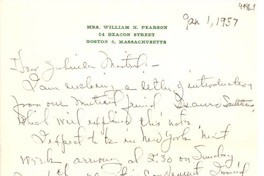 Jan 1, 1957
MRS. WILLIAM H. PEARSON
54 BEACON STREET
BOSTON 8, MASSACHUSETTS
Dear Gabriela Mistral:
I am enclosing a letter of introduction
from our mutual friend
which will explain this note.
I expect to be in New York next
week arriving at 2:30 on Sunday